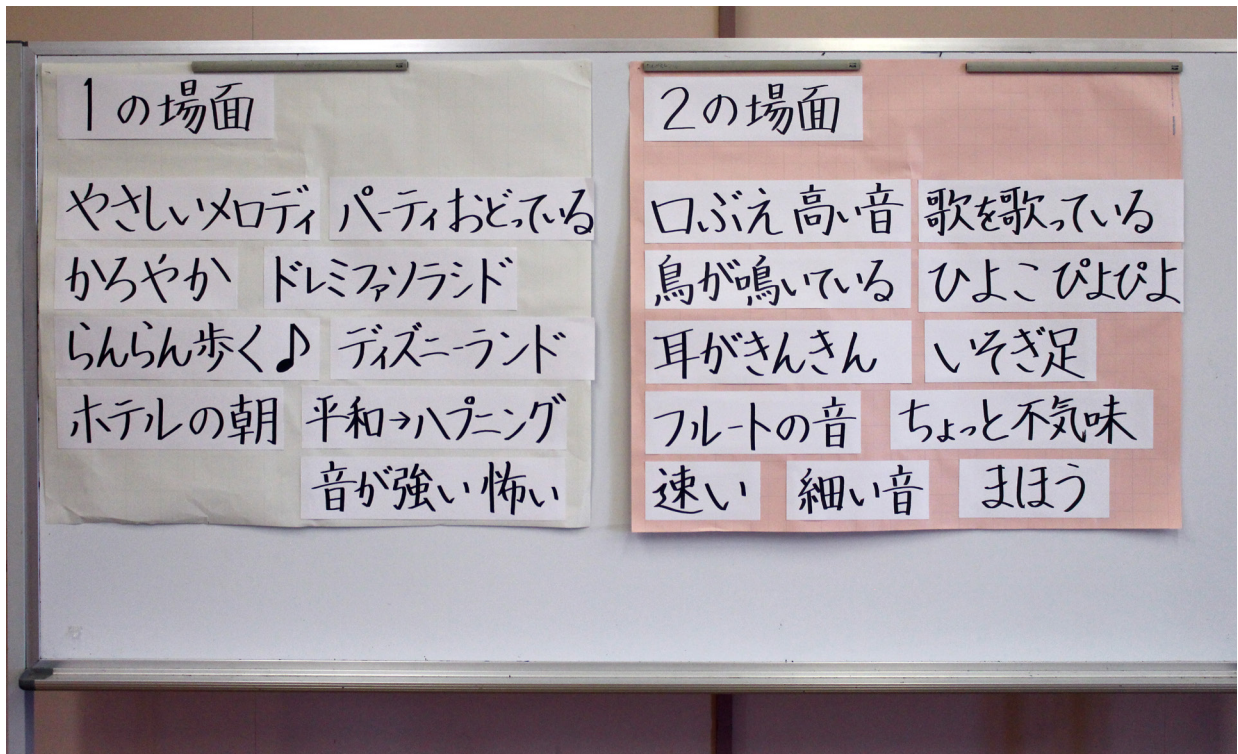 1の場面
やさしいメロディ パーティおどっている
かろやか ドレミファソラシド
らんらん歩く♪ ディズニーランド
ホテルの朝 平和→ハプニング
音が強い 怖い
2の場面
口ぶえ 高い音 歌を歌っている
鳥が鳴いている ひよこ ぴよぴよ
耳がきんきん いそぎ足
フルートの音 ちょっと不気味
速い 細い音 まほう